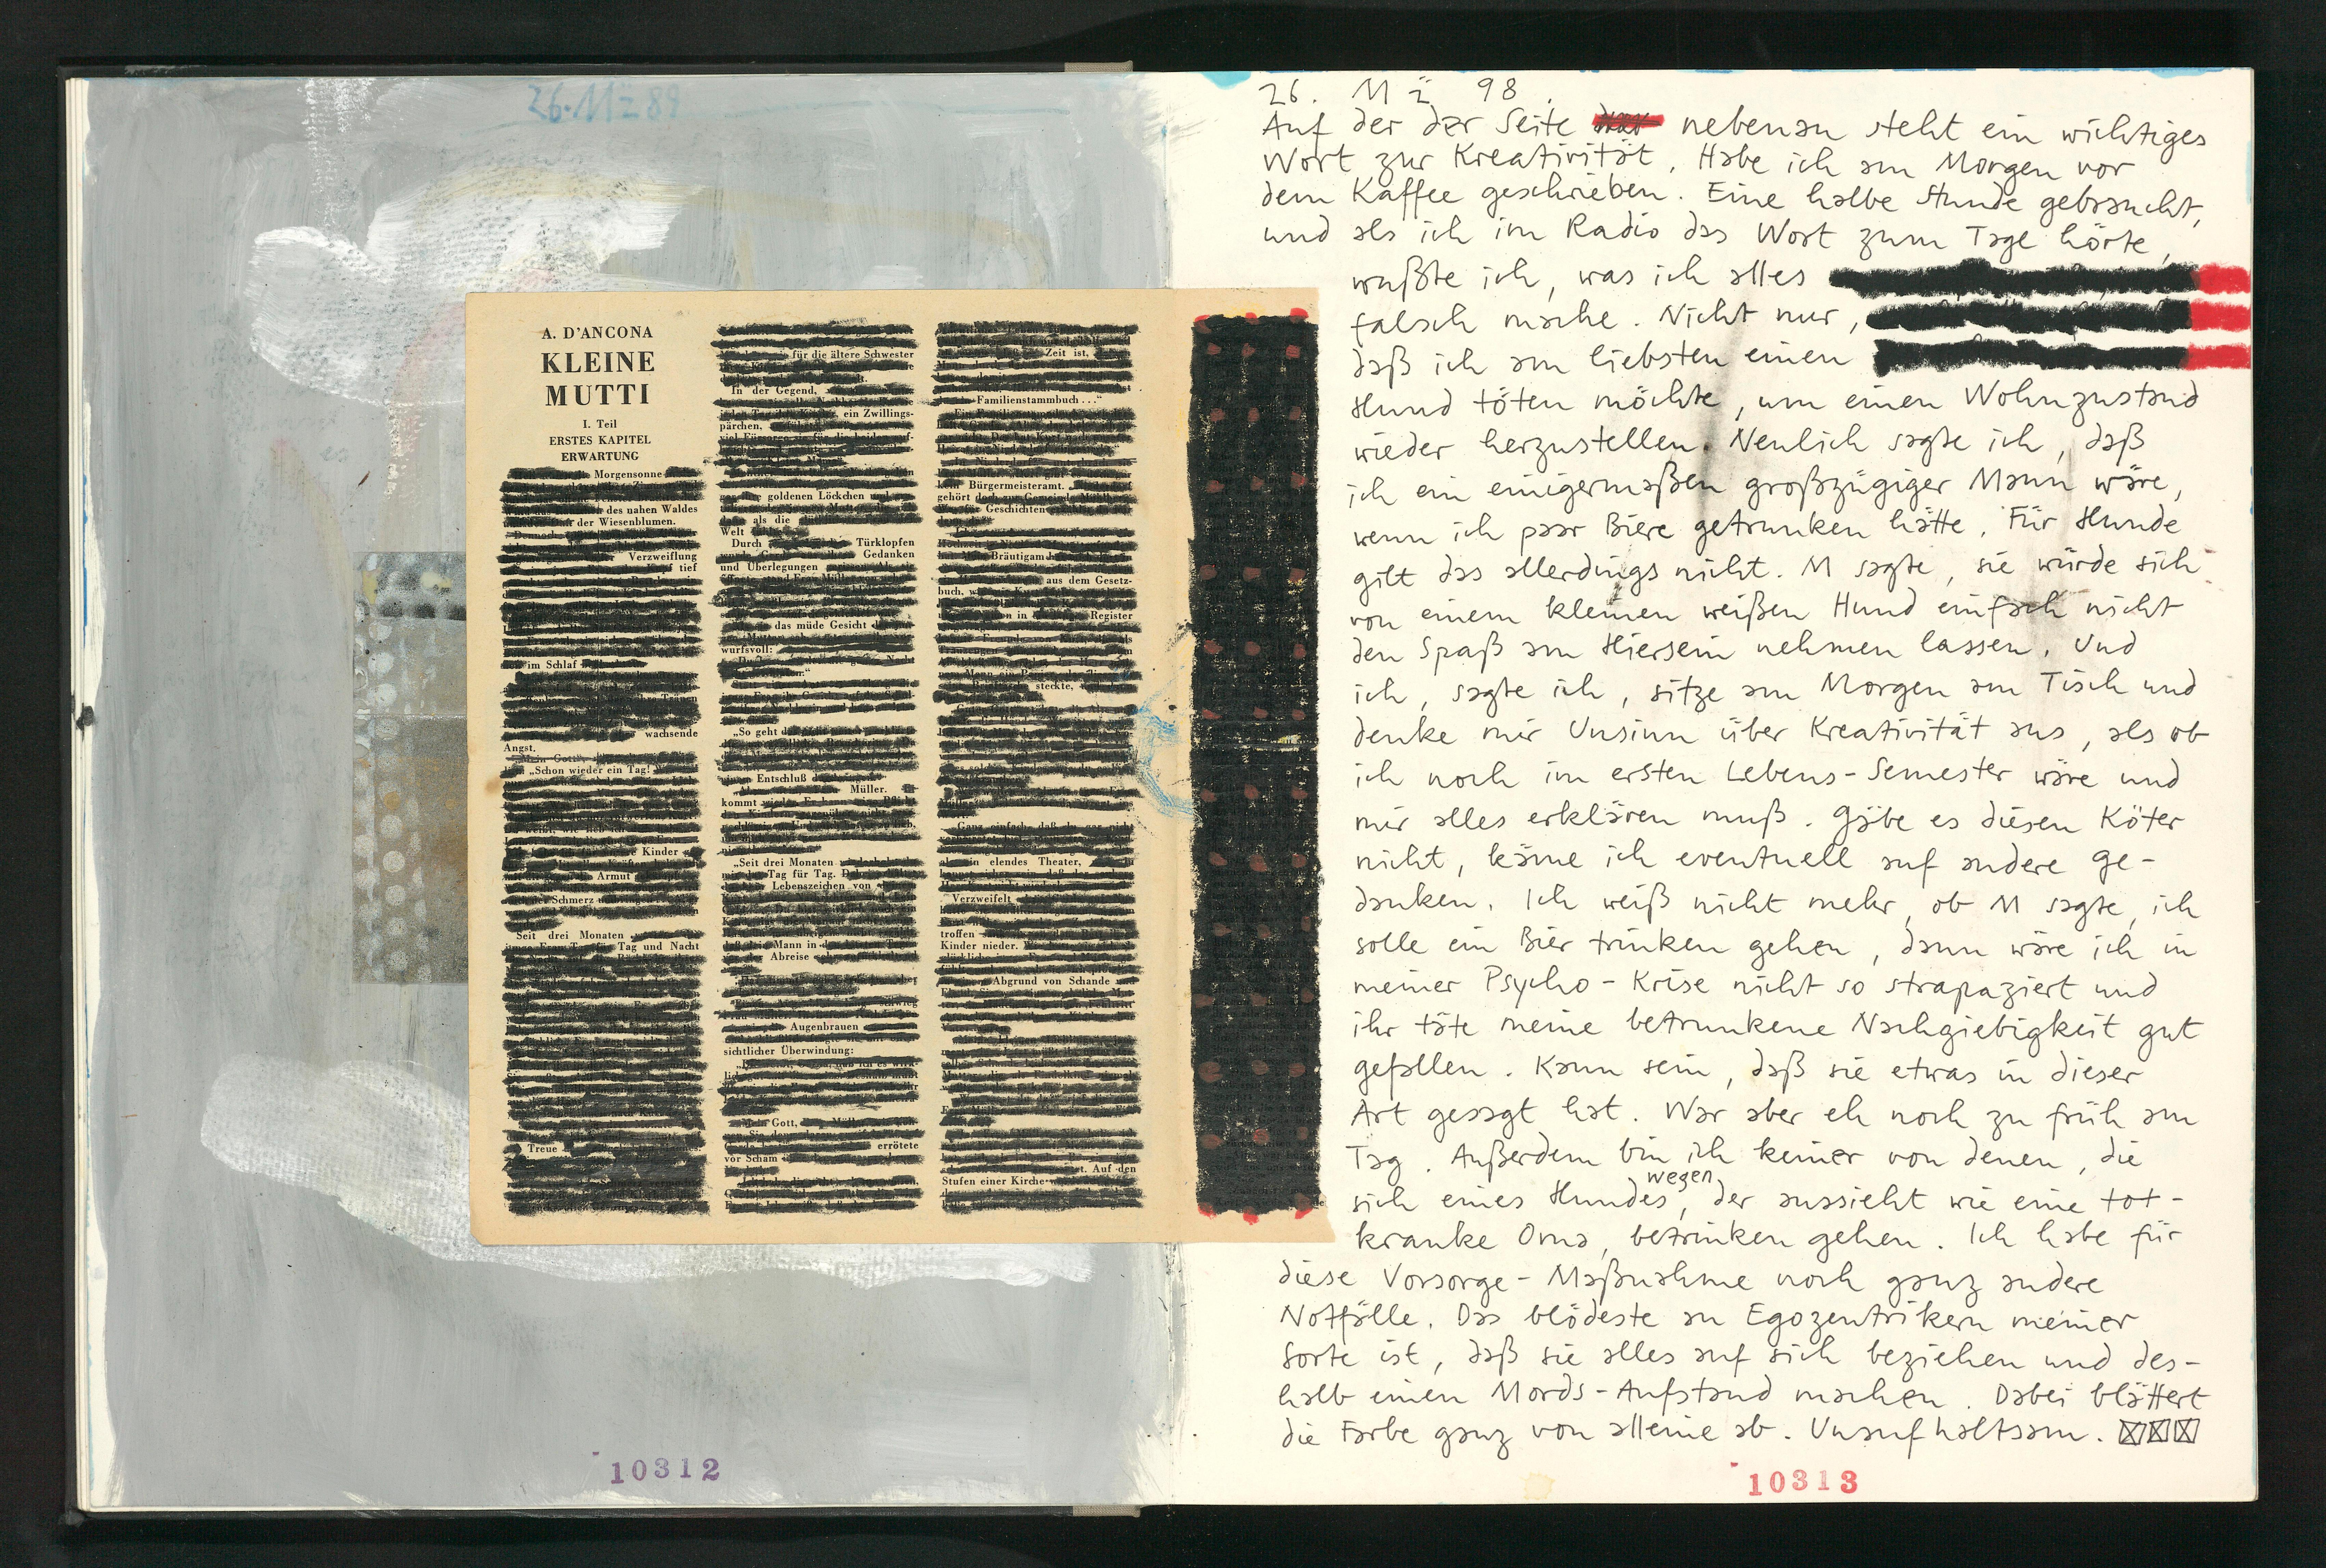 26. Mz 89
A. D'ANCONA
KLEINE
MUTTI
I. Teil
ERSTES KAPITEL
ERWARTUNG
Morgensonne
des nahen Waldes
der Wiesenblumen.
Verzweiflung
tief
im Schlaf
wachsende
Angst.
„Schon wieder ein Tag!
Kinder
Armut
Schmerz
Seit drei Monaten
Tag und Nacht
Treue
für die ältere Schwester
In der Gegend,
ein Zwillings-
pärchen,
goldenen Löckchen
als die
Welt
Durch Türklopfen
Gedanken
und Überlegungen
das müde Gesicht
wurfsvoll:
„So geht
Entschluß
Müller.
kommt
„Seit drei Monaten
Tag für Tag.
Lebenszeichen von
Mann in
Abreise
Augenbrauen
sichtlicher Überwindung:
Gott,
errötete
vor Scham
Zeit ist,
Familienstammbuch . . ."
Bürgermeisteramt.
gehört
Geschichten
Bräutigam
aus dem Gesetz-
buch,
in Register
steckte,
elendes Theater,
Verzweifelt
troffen
Kinder nieder.
Abgrund von Schande
Auf den
Stufen einer Kirche
10312
26. Mz 98.
Auf der der Seite nebenan steht ein wichtiges
Wort zur Kreativität. Habe ich am Morgen vor
dem Kaffee geschrieben. Eine halbe Stunde gebraucht,
und als ich im Radio das Wort zum Tage hörte,
wußte ich, was ich alles
falsch mache. Nicht nur,
daß ich am liebsten einen
Hund töten möchte, um einen Wohnzustand
wieder herzustellen. Neulich sagte ich, daß
ich ein einigermaßen großzügiger Mann wäre,
wenn ich paar Biere getrunken hätte. Für Hunde
gilt das allerdings nicht. M sagte, sie würde sich
von einem kleinen weißen Hund einfach nicht
den Spaß am Hiersein nehmen lassen. Und
ich, sagte ich, sitze am Morgen am Tisch und
denke mir Unsinn über Kreativität aus, als ob
ich noch im ersten Lebens-Semester wäre und
mir alles erklären muß. Gäbe es diesen Köter
nicht, käme ich eventuell auf andere Ge-
danken. Ich weiß nicht mehr, ob M sagte, ich
solle ein Bier trinken gehen, dann wäre ich in
meiner Psycho-Krise nicht so strapaziert und
ihr täte meine betrunkene Nachgiebigkeit gut
gefallen. Kann sein, daß sie etwas in dieser
Art gesagt hat. War aber eh noch zu früh am
Tag. Außerdem bin ich keiner von denen, die
sich wegen eines Hundes, der aussieht wie eine tot-
kranke Oma, betrinken gehen. Ich habe für
diese Vorsorge-Maßnahme noch ganz andere
Notfälle. Das blödeste an Egozentrikern meiner
Sorte ist, daß sie alles auf sich beziehen und des-
halb einen Mords-Aufstand machen. Dabei blättert
die Farbe ganz von alleine ab. Unaufhaltsam.
10313